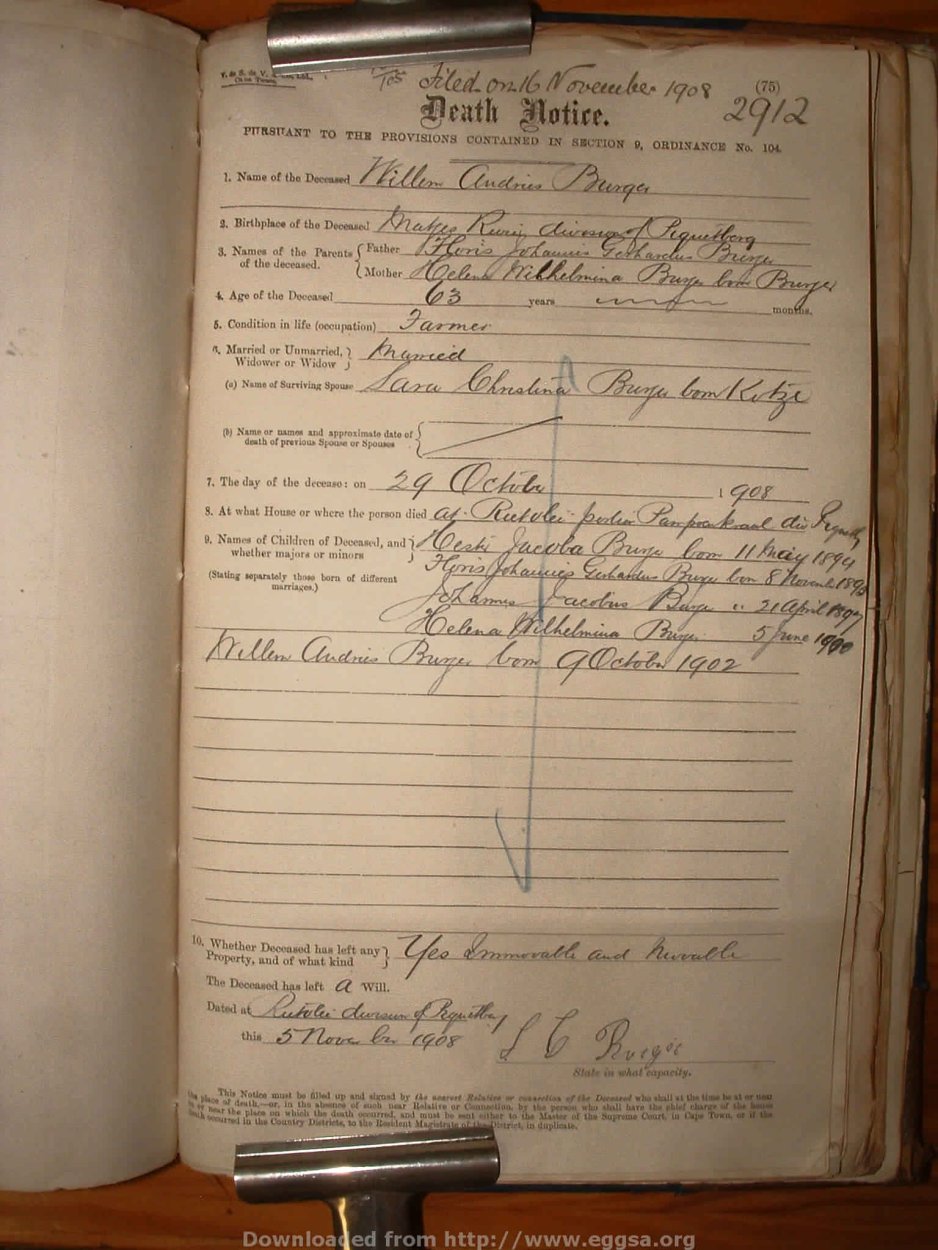 Filed on 16 November 1908
(75)
2912
Death Notice.
PURSUANT TO THE PROVISIONS CONTAINED IN SECTION 9, ORDINANCE No. 104.
1. Name of the Deceased Willem Andries Burger
2. Birthplace of the Deceased division of Piquetberg
3. Names of the Parents of the deceased. Father Floris Johannes Gerhardus Burger
Mother Helena Wilhelmina Burger born Burger
4. Age of the Deceased 63 years months.
5. Condition in life (occupation) Farmer
6. Married or Unmarried, Widower or Widow Married
(a) Name of Surviving Spouse Sara Christina Burger born Kotze
(b) Name or names and approximate date of death of previous Spouse or Spouses
7. The day of the decease: on 29 October 1908
8. At what House or where the person died at Rietvlei portion Pampoenkraal div Piquetbg
9. Names of Children of Deceased, and whether majors or minors Hester Jacoba Burger born 11 May 1894
Floris Johannes Gerhardus Burger born 8 Novemb 1895
(Stating separately those born of different marriages.)
Johannes Jacobus Burger " 21 April 1897
Helena Wilhelmina Burger 5 June 1900
Willem Andries Burger born 9 October 1902
10. Whether Deceased has left any Property, and of what kind Yes Immovable and Movable
The Deceased has left a Will.
Dated at Rietvlei division of Piquetberg
this 5 November 1908
S C Burger
State in what capacity.
This Notice must be filled up and signed by the nearest Relative or connection of the Deceased who shall at the time be at or near
the place of death,—or, in the absence of such near Relative or Connection, by the person who shall have the chief charge of the house
in or near the place on which the death occurred, and must be sent either to the Master of the Supreme Court, in Cape Town, or if the
death occurred in the Country Districts, to the Resident Magistrate of the District, in duplicate.
Downloaded from http://www.eggsa.org